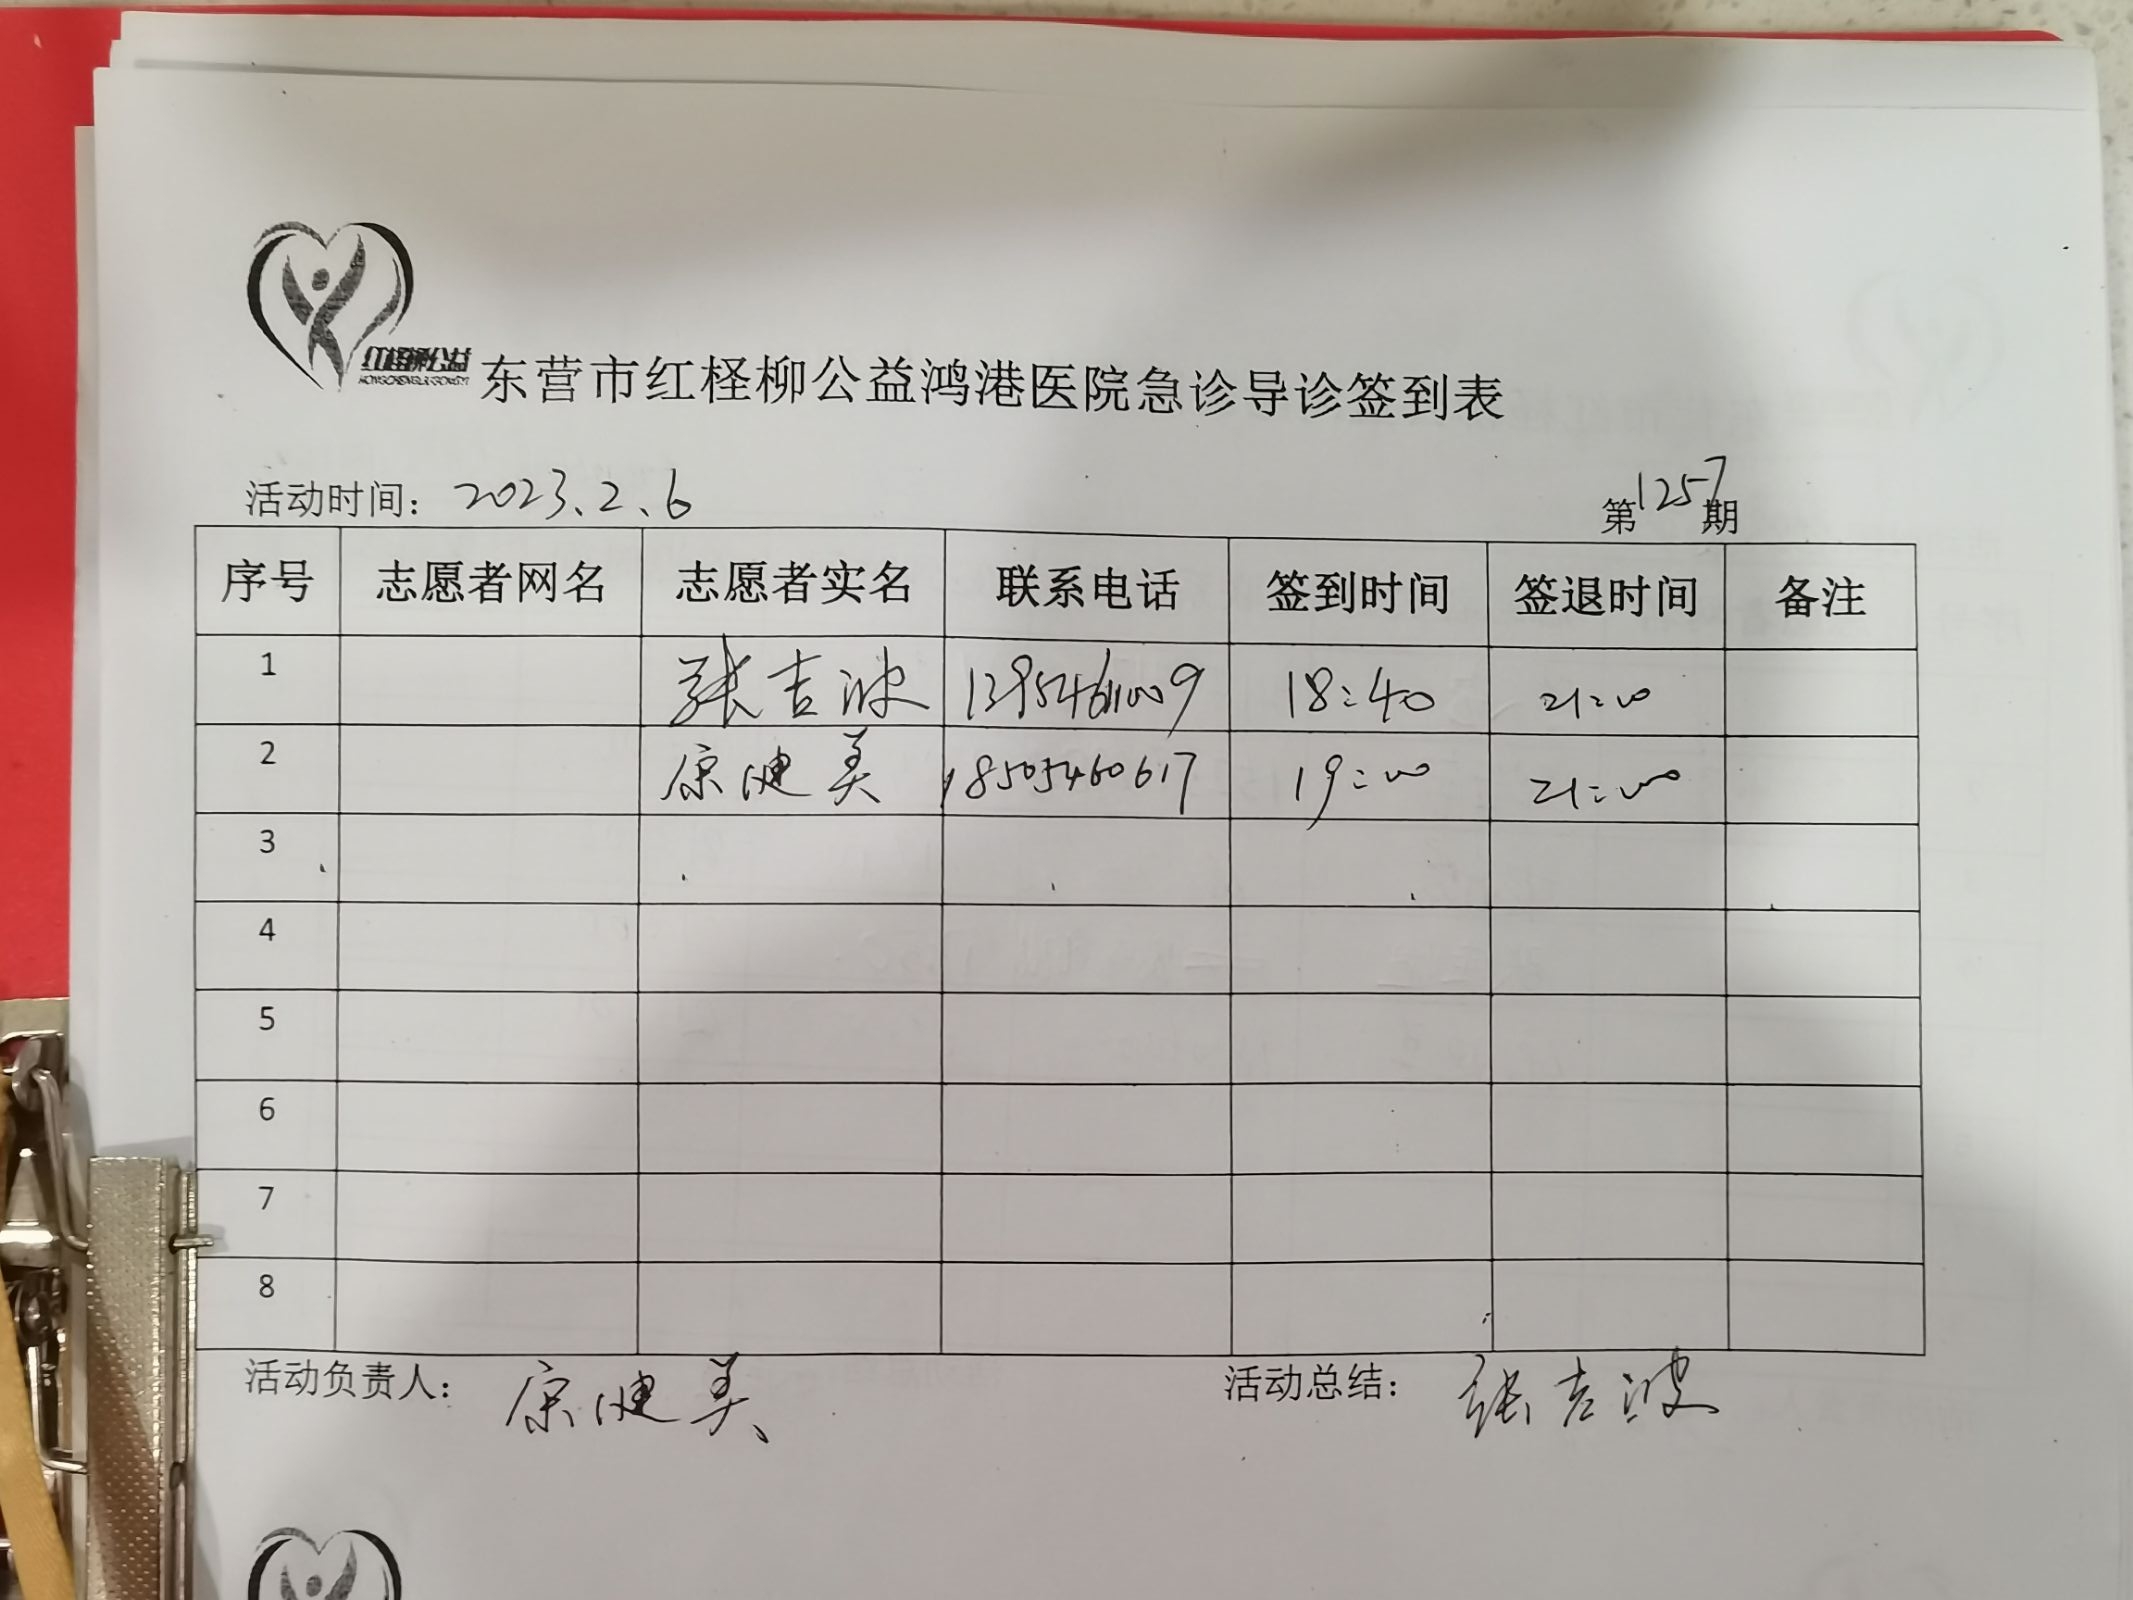 红柽柳公益
HONGCHENGLIUGONGYI
东营市红柽柳公益鸿港医院急诊导诊签到表
活动时间： 2023.2.6 第1257期
序号 志愿者网名 志愿者实名 联系电话 签到时间 签退时间 备注
1 张吉波 13954611009 18:40 21:00
2 康健美 18505460617 19:00 21:00
3
4
5
6
7
8
活动负责人： 康健美 活动总结： 张吉波